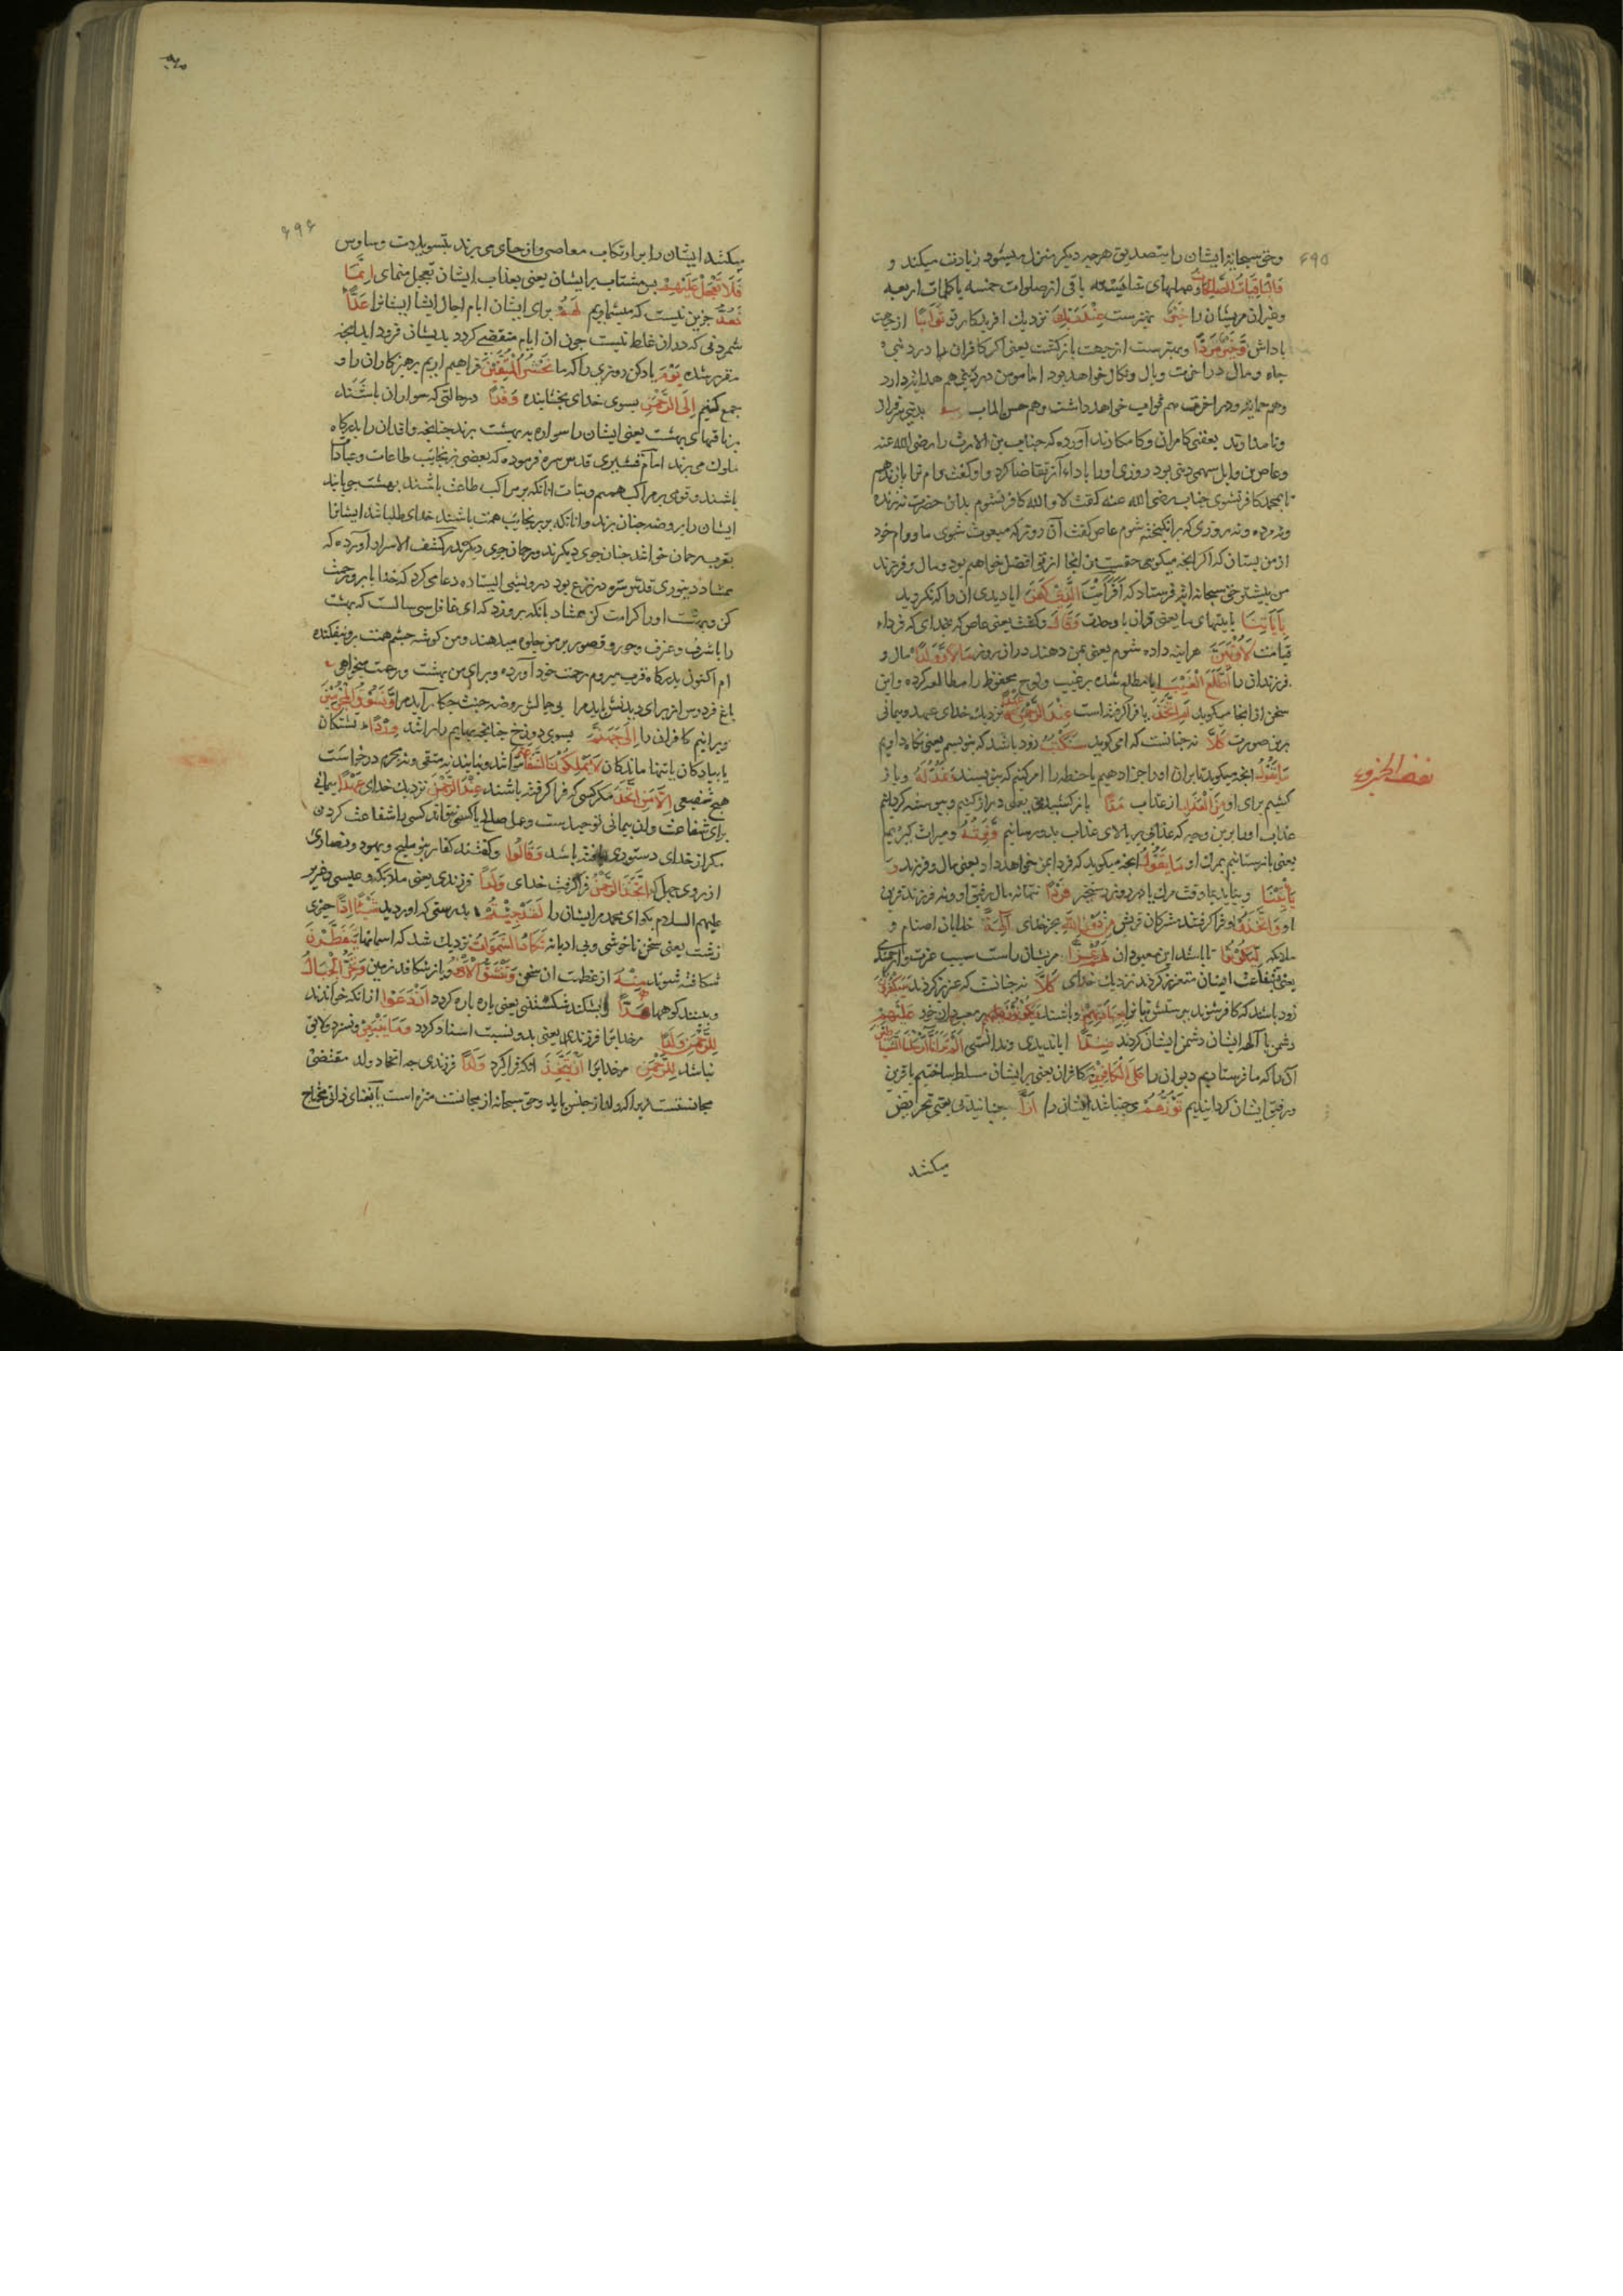 ۶۹۵
وحق سبحانه ایشان را بتصدیق هرچه دیکر منزل میشود زیادت میکند و
وَالْبَاقِیَاتُ الصَّالِحَاتُ وعملهای شایسته باقی از صلوات خمسه یا کلمات اربعه
وغیران مریشان را خَیْرٌ بهترست عِنْدَ رَبِّكَ نزدیك افریدکار تو ثَوَابًا از جهت
پاداش وَخَیْرٌ مَرَدًّا وبهترست از جهت بازکشت یعنی اکر کافران را در دنیی
جاه ومال در اخرت وبال ونکال خواهد بود اما مومن در دنیی هم هدایت دارد
وهم حمایت ودر اخرت هم ثواب خواهد داشت وهم حسن الماب
ونامدارند یعنی کامران وکامکارند آورده که خباب بن الارث را رضی الله عنه
وعاص بن وایل سهمی دینی بود روزی اورا باداء آن تقاضا کرد واو کفت وام ترا باز ندهم
تا بمحمد کافر نشوی خباب رضی الله عنه کفت لا والله کافر نشوم بدان حضرت نه زنده
ونه مرده ونه روزی که برانکیخته شوم عاص کفت آن روز که مبعوث شوی ما ووام خود
از من بستان که اکر انچه میکویی حقست من انجا از تو افضل خواهم بود ومال وفرزند
من بیشتر حق سبحانه ایة فرستاد که اَفَرَأَیْتَ الَّذِی كَفَرَ ایا دیدی ان را که نکروید
بِآیَاتِنَا بایتهای ما یعنی قران یا وحدت وَقَالَ وکفت یعنی عاص که بخدای که فرداء
قیامت لَأُوتَیَنَّ هراینه داده شوم یعنی بمن دهند دران روز مَالًا وَوَلَدًا مال و
فرزندان را اَطَّلَعَ الْغَیْبَ ایا مطلع شده بر غیب ولوح محفوظ را مطالعه کرده واین
سخن از انجا میکوید اَمِ اتَّخَذَ یا فرا کرفته است عِنْدَ الرَّحْمٰنِ عَهْدًا نزدیك خدای عهد وپیمانی
برین صورت كَلَّا نه چنانست که او می کوید سَنَكْتُبُ زود باشد که بنویسم یعنی نکاه داریم
مَا یَقُولُ انچه میکوید تا بران اورا جزا دهیم یا حفظه را امر کنیم که بنویسند وَنَمُدُّ لَهُ وباز
کشیم برای او مِنَ الْعَذَابِ از عذاب مَدًّا باز کشیدنی یعنی دراز کنیم وپیوسته کردانیم
عذاب اورا برین وجه که عذابی بر بالای عذاب بدو رسانیم وَنَرِثُهُ ومیراث کیریم
یعنی بازستانیم بمرك او مَا یَقُولُ انچه میکوید که فردا بمن خواهد داد یعنی مال وفرزند وَ
یَأْتِینَا وبیاید بما وقت مرك یا در روز رستخیز فَرْدًا تنها نه مال رفیق او ونه فرزند قرین
او وَاتَّخَذُوا وفرا کرفتند مشرکان قریش مِنْ دُونِ اللّٰهِ بجز خدای آلِهَةً خدایان اصنام و
ملائکه لِیَكُونُوا تا باشند این معبودان لَهُمْ عِزًّا مریشان راست سبب عزت وارجمندی
یعنی بشفاعت ایشان متعزز کردند نزدیك خدای كَلَّا نه چنانست که عزیز کردند سَیَكْفُرُونَ
زود باشد که کافر شوند بپرستش بتان بِعِبَادَتِهِمْ وباشند وَیَكُونُونَ بر معبودان خود عَلَیْهِمْ
دشمن یا الهه ایشان دشمن ایشان کردند ضِدًّا ایا ندیدی وندانستی اَلَمْ تَرَ اَنَّا اَرْسَلْنَا الشَّیَاطِینَ
آنرا که ما فرستادیم دیوان را عَلَى الْكَافِرِینَ بر کافران یعنی بر ایشان مسلط ساختیم یا قرین
ورفیق ایشان کردانیدیم تَؤُزُّهُمْ می جنبانند ایشان را اَزًّا جنبانیدنی یعنی تحریض
میکشد
نصف الجزء
۶۹۶
میکنند ایشان را بر ارتکاب معاصی واز جای می برند بتسویلات وساوس
فَلَا تَعْجَلْ عَلَیْهِمْ پس مشتاب بر ایشان یعنی بعذاب ایشان تعجیل منمای اِنَّمَا
نَعُدُّ جزین نیست که میشماریم لَهُمْ برای ایشان ایام اجال ایشان را عَدًّا
شمردنی که دران غلط نیست چون ان ایام منقضی کردد بدیشان فرود اید انچه
مقرر شده یَوْمَ یاد کن روزی را که ما نَحْشُرُ الْمُتَّقِینَ فراهم اریم پرهیزکاران را و
جمع کنیم اِلَى الرَّحْمٰنِ بسوی خدای بخشاینده وَفْدًا درحالتی که سواران باشند
بر ناقهای بهشت یعنی ایشان را سواره به بهشت برند چنانچه وافدان را بدرکاه
ملوك می برند امام قشیری قدس سره فرموده که بعضی بر نجایب طاعات وعبادات
باشند وقومی بر مراکب همم ونیات انانکه بر مراکب طاعت باشند بهشت جویانند
ایشان را بروضه جنان برند وانانکه بر نجایب همت باشند خدای طلبانند ایشانرا
بقرب رحمان خوانند جنان جوی دیکرند ورحمان جوی دیکر در کشف الاسرار آورده که
ممشاد دینوری قدس سره در نزع بود درویشی ایستاده دعا می کرد که خدایا برو رحمت
کن وبهشت اورا کرامت کن ممشاد بانك برو زد که ای غافل سی سالست که بهشت
را با شرف وغرف وحور وقصور بر من جلوه میدهند ومن کوشه چشم همت برو نیفکنده
ام اکنون بدرکاه قرب میروم زحمت خود آورده وبرای من بهشت ورحمت میخواهی
باغ فردوس از برای دیدنش باید مرا بی جمالش روضه جنت چه کار آید مرا وَنَسُوقُ الْمُجْرِمِینَ
وبرانیم کافران را اِلٰى جَهَنَّمَ بسوی دوزخ چنانچه بهایم را برانند وِرْدًا تشنکان
یا پیادکان یا تنها ماندکان لَا یَمْلِكُونَ الشَّفَاعَةَ نتوانند ونیابند نه متقی ونه مجرم درخواست
هیچ شفیعی اِلَّا مَنِ اتَّخَذَ مکر کسی که فرا کرفته باشد عِنْدَ الرَّحْمٰنِ نزدیك خدای عَهْدًا پیمانی
برای شفاعت وان پیمانی توحیدست وعمل صالح یا کسی نتواند کسی را شفاعت کردن
مکر از خدای دستوری یافته باشد وَقَالُوا وکفتند کفار بنو ملیح ویهود ونصاری
از روی جهل که اتَّخَذَ الرَّحْمٰنُ فرا کرفت خدای وَلَدًا فرزندی یعنی ملائکه وعیسی وعزیر
علیهم السلام بکو ای محمد مرایشان را لَقَدْ جِئْتُمْ بدرستی که اوردید شَیْئًا اِدًّا چیزی
زشت یعنی سخن ناخوشی وبی ادبانه تَكَادُ السَّمٰوَاتُ نزدیك شد که اسمانها یَتَفَطَّرْنَ
شکافته شوند مِنْهُ از عظمت ان سخن وَتَنْشَقُّ الْأَرْضُ وباز شکافد زمین وَتَخِرُّ الْجِبَالُ
وبیفتند کوهها هَدًّا بشکنند شکستنی یعنی پاره پاره کردد اَنْ دَعَوْا ازانکه خواندند
لِلرَّحْمٰنِ وَلَدًا مرخدایرا فرزندی یعنی بدو نسبت اسناد کردند وَمَا یَنْبَغِی ونسزد ولایق
نباشد لِلرَّحْمٰنِ مرخدایرا اَنْ یَتَّخِذَ انکه فرا کیرد وَلَدًا فرزندی چه اتخاد ولد مقتضی
مجانستست زیرا که ولد از جنس باید وحق سبحانه از مجانست منزه است